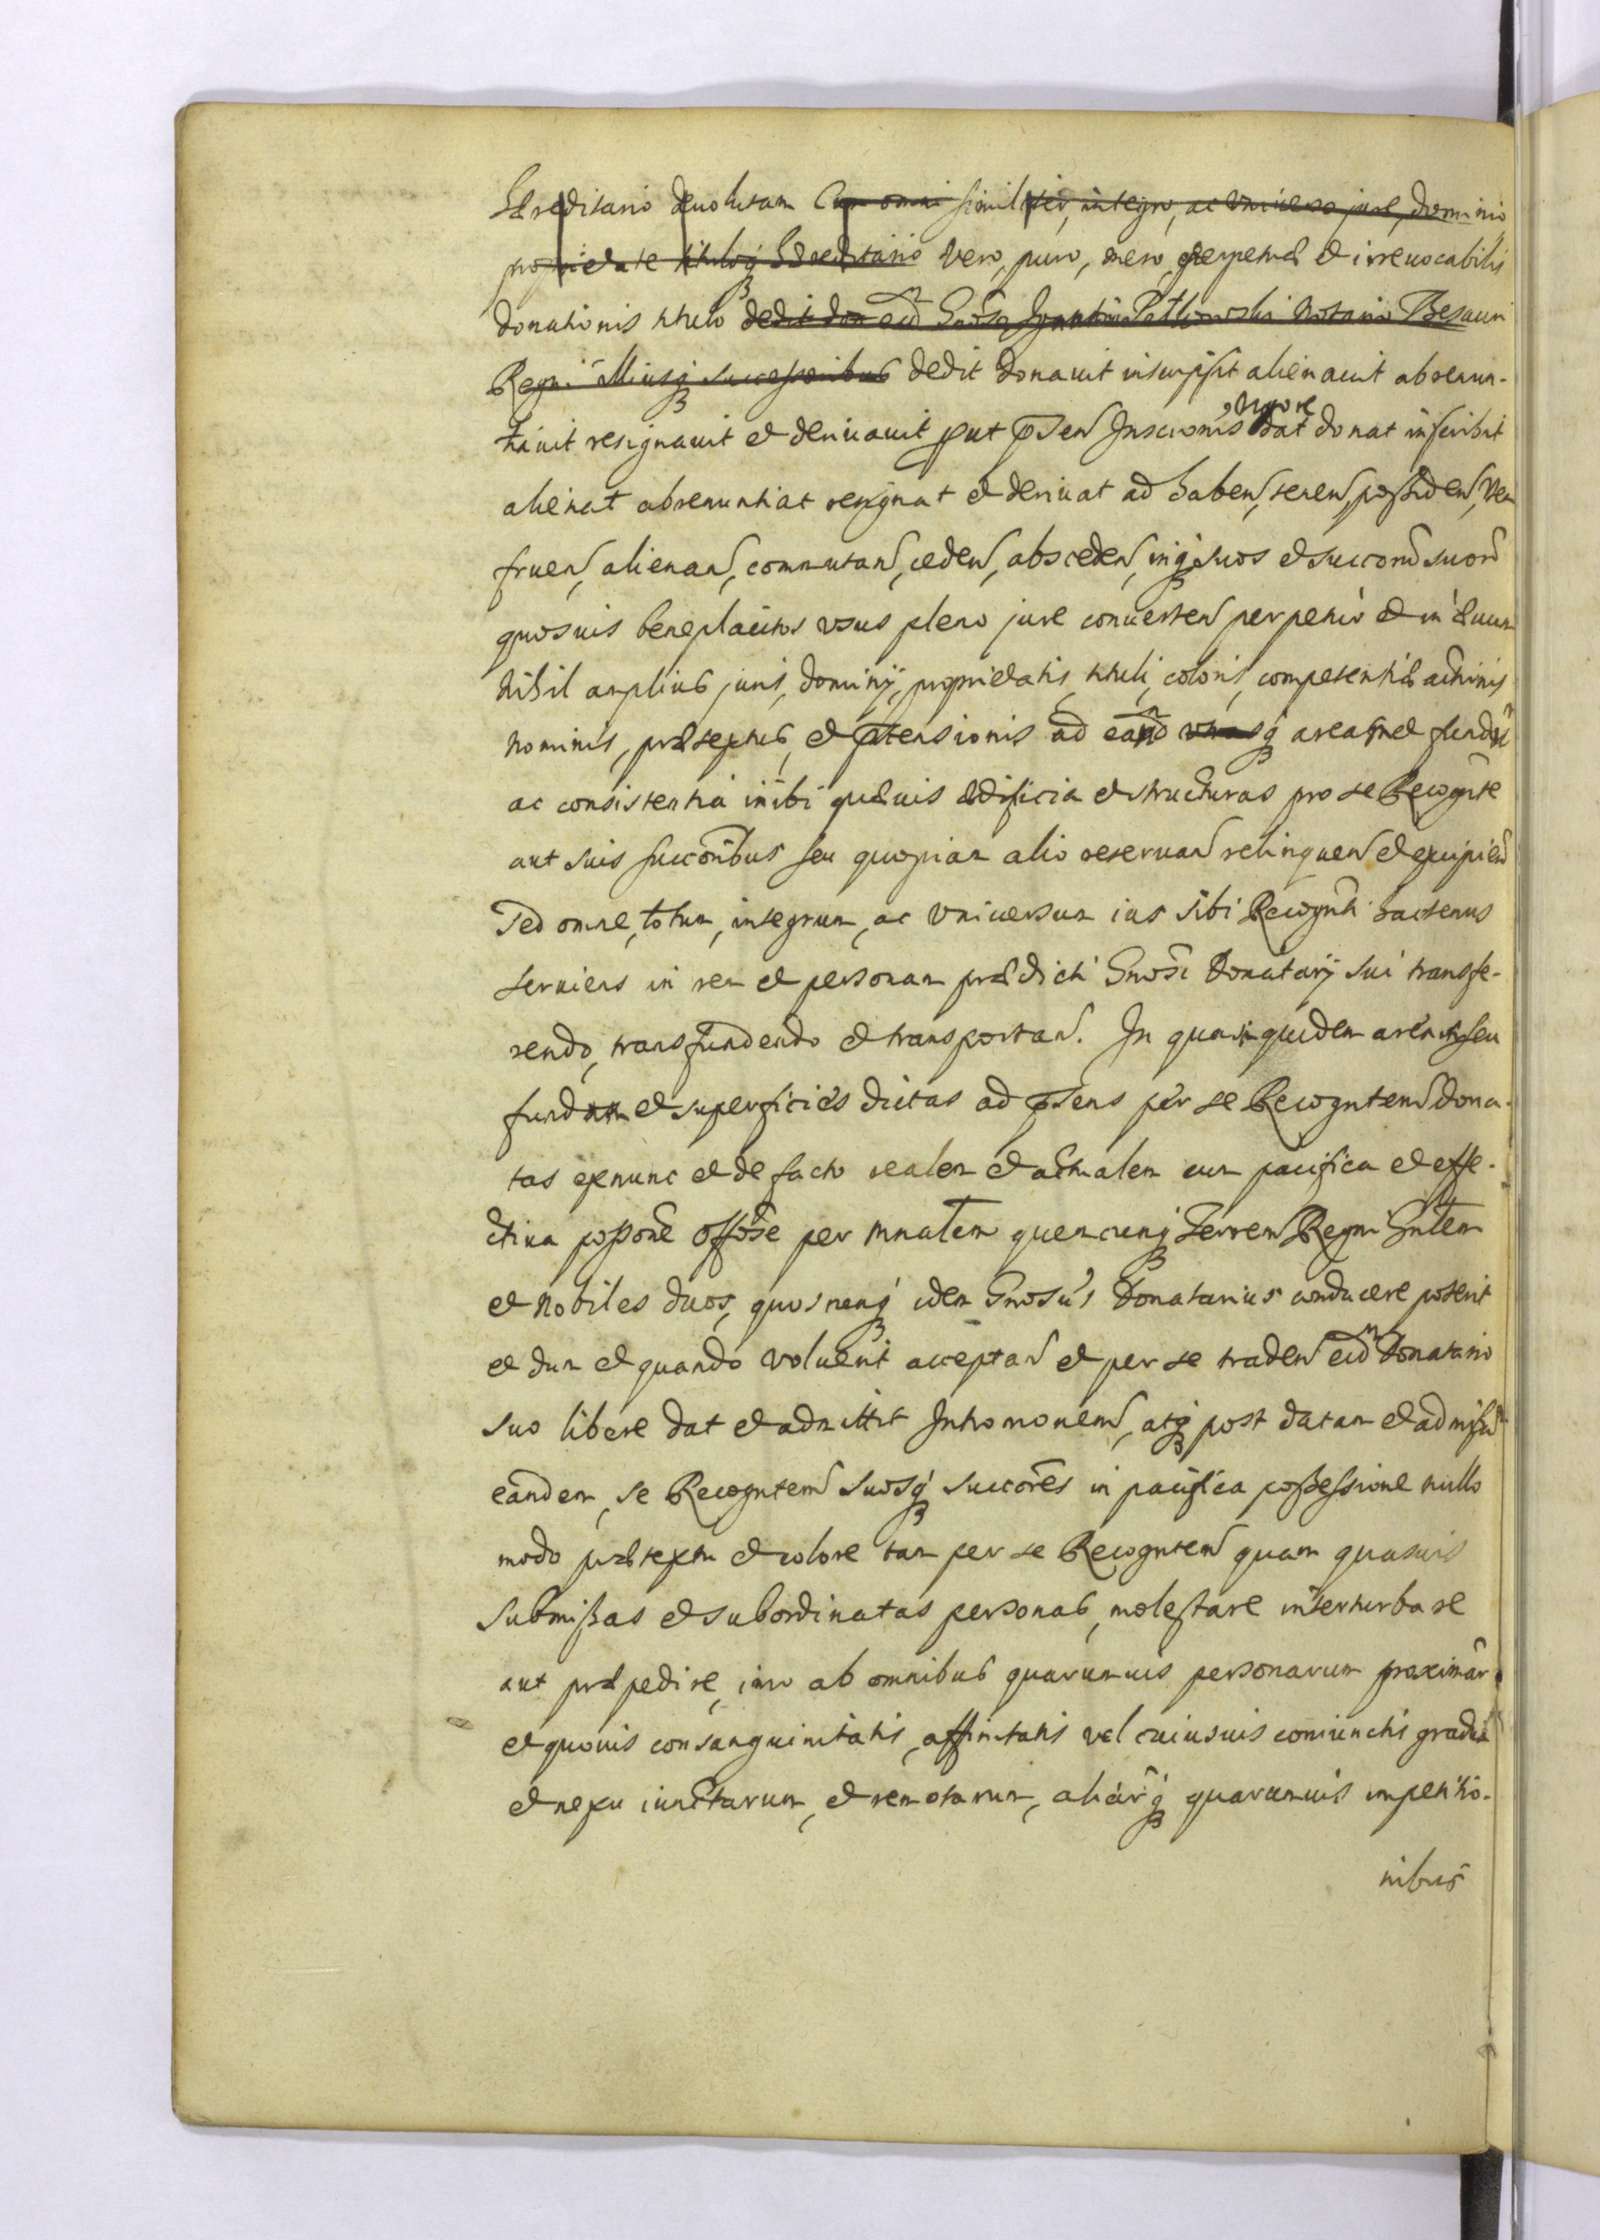 Hæreditario deuolutam Cum omni similiter, integro, ac vniuerso jure, dominio
proprietate tituloq3 Hæreditario vero, puro, mero, perpetuæ et irreuocabilis
donationis titulo dedit don eidm Gnoso Patkowski Notario Thesauri
Regni illiusq3 successoribus dedit donauit inscripsit alienauit abrenun-
tiauit resignauit et deriuauit put pñsen Inscrionis vigore dat donat inscribit
alienat abrenuntiat resignat et deriuat ad haben, tenen, possiden, vten
fruen, alienan, commutan, ceden, absceden, inq3 suos et succorū suor̄
quosuis beneplacitos vsus pleno jure conuerten perpetuò et in æuum
Nihil amplius juris, dominij, proprietatis, tituli, coloris, competentiæ actionis
Nominis, prætextus, et prætensionis ad eand vnasq3 aream et fundū
ac consistentia inibi quæuis ædificia et structuras pro se Recognte
aut suis succoribus seu quopiam alio reseruan relinquen et excipien
Sed omne, totum, integrum, ac vniuersum ius sibi Recognti hactenus
seruiens in rem et personam prædicti Gnosi Donatarij sui transfe-
rendo, transfundendo et transportan. In quam quidem aream seu
fundum et superficies dictas ad pñsens per se Recogntem dona-
tas exnunc et de facto realem et actualem cum pacifica et effe-
ctiua possone offōse per mnalem quemcunq3 Terren Regni Gnlem
et Nobiles duos, quos nenq3 idem Gnosus Donatarius conducere poterit
et dum et quando voluerit acceptan et per se traden eidm Donatario
suo libere dat et admittit Intromonem, atq3 post datam et admissā
eandem, se Recogntem suosq3 succores in pacifica possessione nullo
modo prætextu et colore tam per se Recognten quam quasuis
submissas et subordinatas personas, molestare interturbare
aut præpedire, imo ab omnibus quarumuis personarum proximar.
et quouis consanguinitatis, affinitatis vel cuiusuis coniunctis gradu
et nexu iunctarum, et remotarum, aliarq3 quarumuis impetitio-
nibus